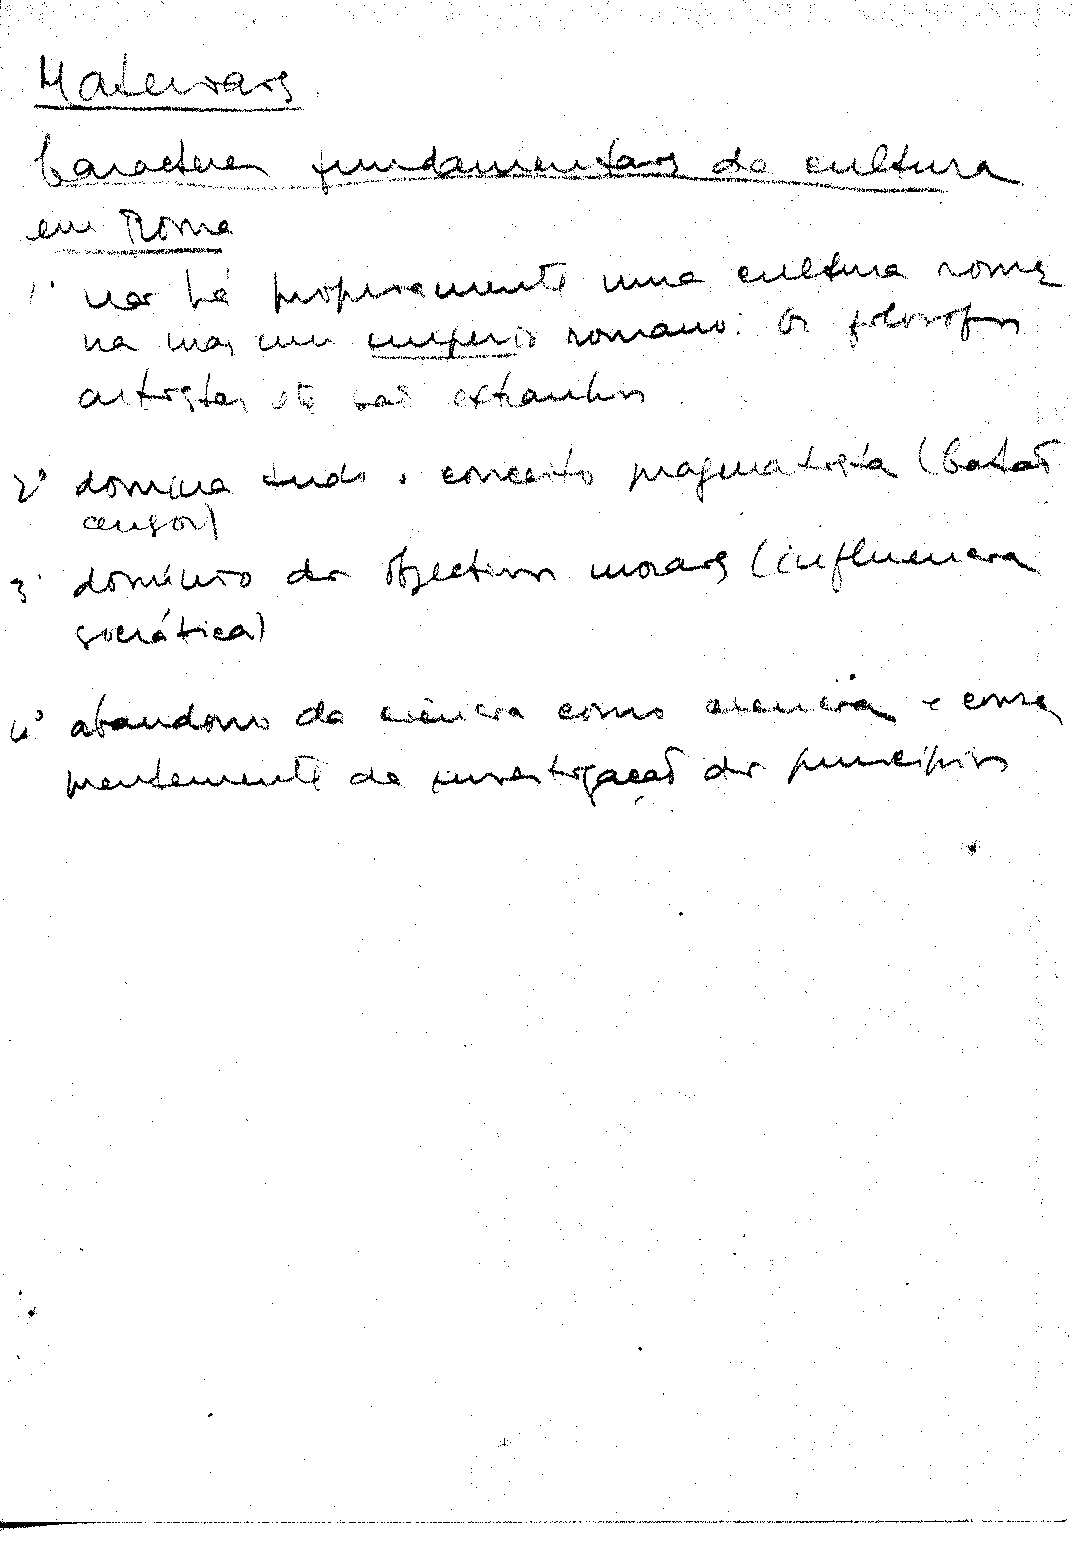 Materiais
Caracteres fundamentais da cultura
em Roma
1º não há propriamente uma cultura roma
na mas um império romano. Os filosofos
artistas etc são extranhos
2º domina tudo o conceito pragmatista (Catão
censor)
3º domínio dos objectivos morais (influencia
socrática)
4º abandono da ciência como ciencia e conse
quentemente da investigação dos principios